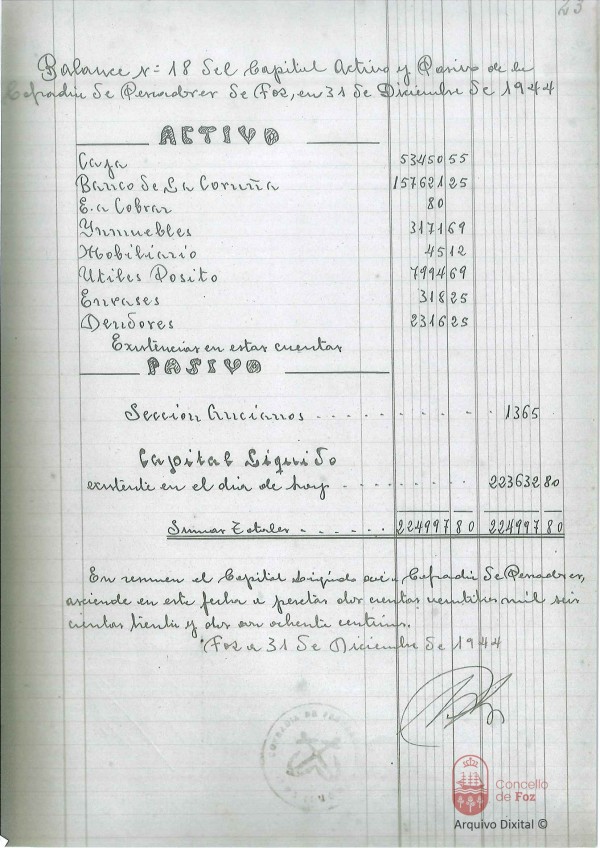 23
Balance nº 18 Del Capital Activo y Pasivo de la
Cofradia de Pescadores de Foz, en 31 de Diciembre de 1944
ACTIVO
Caja 53450 55
Banco de La Coruña 157621 25
E. a Cobrar 80
Ynmuebles 3171 69
Mobiliario 45 12
Utiles Posito 7994 69
Envases 318 25
Deudores 2316 25
Existencias en estas cuentas
PASIVO
Sección Ancianos . . . . . . . . 1365
Capital Líquido
existente en el dia de hoy . . . . . . . 223632 80
Sumas Totales . . . . . . 224997 80 224997 80
En resumen el Capital Liquido Cofradia de Pescadores,
asciende en esta fecha a pesetas dos cientas veintitres mil seis
cientas treinta y dos con ochenta centimos.
Foz a 31 de Diciembre de 1944
COFRADIA DE
Concello
de Foz
Arquivo Dixital ©